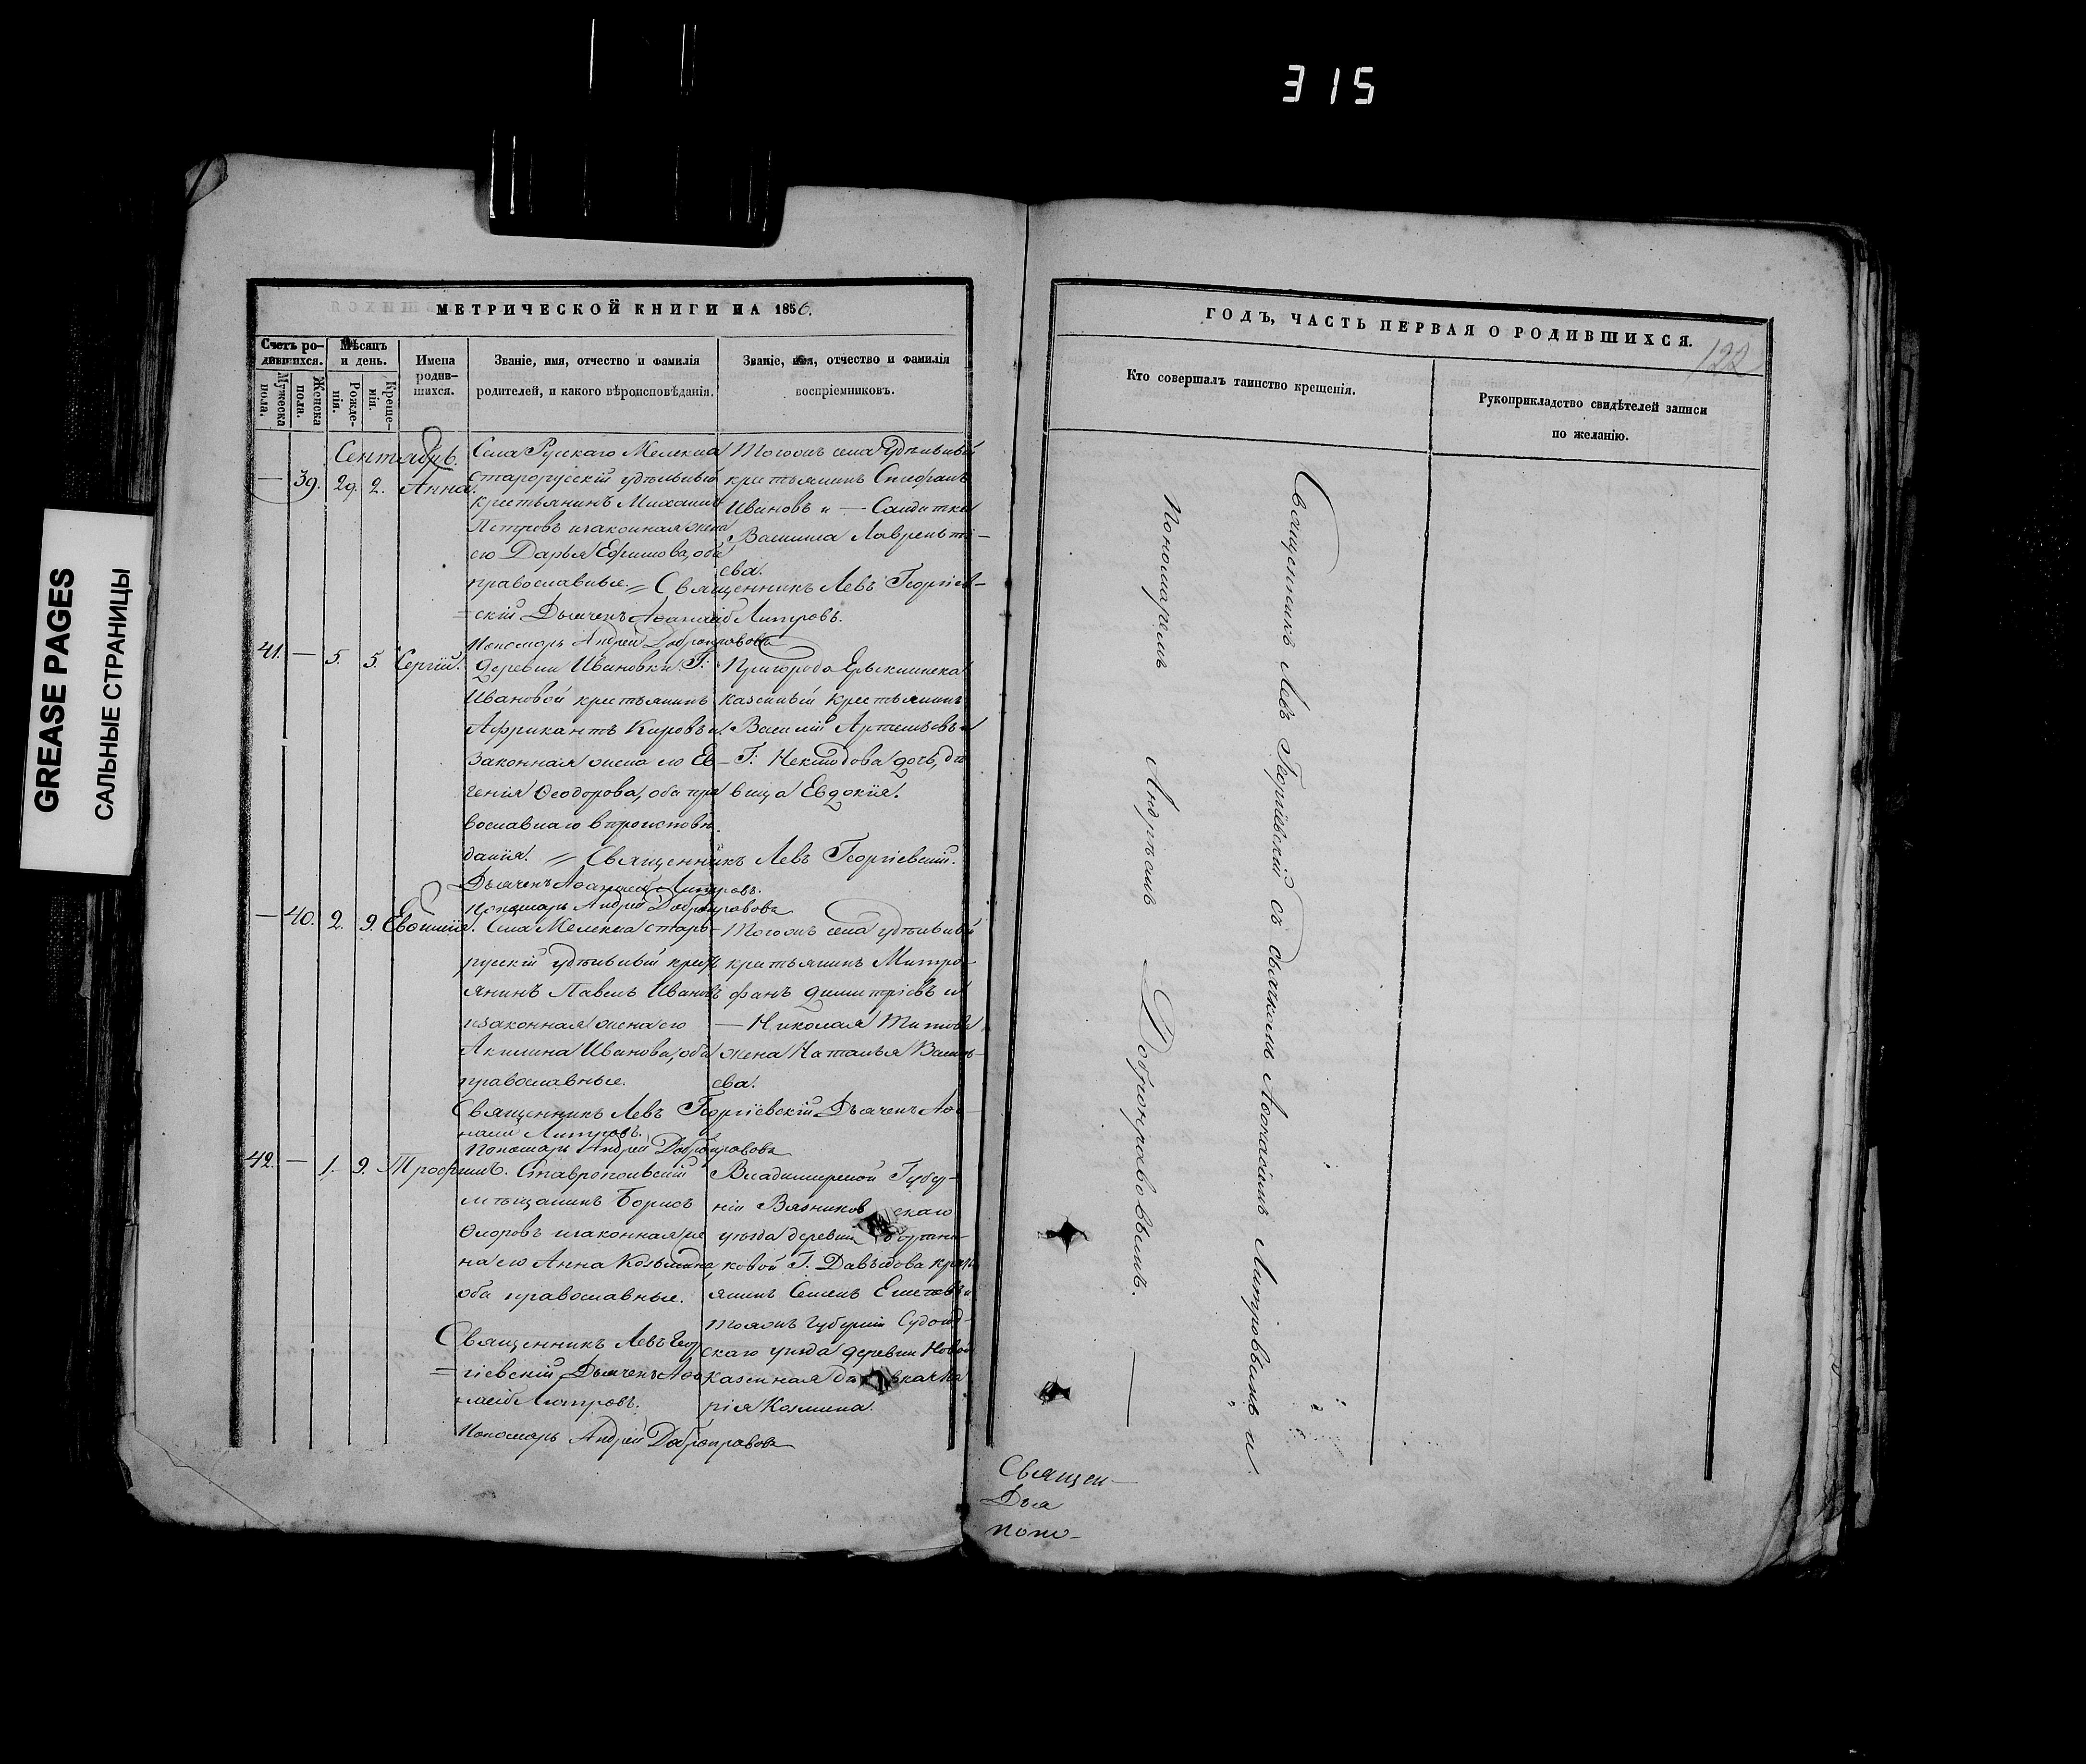 315
GREASE PAGES
САЛЬНЫЕ СТРАНИЦЫ
МЕТРИЧЕСКОЙ КНИГИ НА 1856.
Счетъ ро-
дившихся.
Мужеска
пола.
Женска
пола.
Мѣсяцъ
и день.
Рожде-
нія.
Креще-
нія.
Имена
родив-
шихся.
Званіе, имя, отчество и фамилія
родителей, и какого вѣроисповѣданія.
Званіе, имя, отчество и фамилія
воспріемниковъ.
Сентябрь.
— 39. 29. 2. Анна.
Села Русскаго Мелекеса
старорусскій удѣльный
крестьянинъ Михаилъ
Петровъ и законная жена
его Дарья Ефимова, оба
православные. = Священникъ Левъ Георгіев-
=скій Дьячекъ Аѳанасій Литровъ.
Пономарь Андрей Добронравовъ
Тогожъ села удѣльный
крестьянинъ Стефанъ
Ивановъ и — Солдатка
Васильева Лавренть-
ева.
41. — 5. 5. Сергій.
Деревни Ивановки Г.
Ивановой крестьянинъ
Африкантъ Кировъ и
законная жена его Ев-
генія Ѳеодорова, оба пра
вославнаго вѣроисповѣ.
данія. = Священникъ Левъ Георгіевскій.
Дьячекъ Аѳанасій Литровъ.
Пономарь Андрей Добронравовъ
Пригорода Ерыклинска
казенный крестьянинъ
Василій Артемьевъ и
Г. дочь, дѣ
вица Евдокія.
— 40. 2. 9. Евѳимія.
Села Мелекеса старо-
русскій удѣльный крест
янинъ Павелъ Ивановъ
и законная жена его
Акилина Иванова, оба
православные.
Священникъ Левъ Георгіевскій Дьячекъ Аѳа-
насій Литровъ.
Пономарь Андрей Добронравовъ
Тогожъ села удѣльный
крестьянинъ Митро-
фанъ Димитріевъ и
— Николая Титова
жена Наталья Василь-
ева.
42. — 1. 9. Трофимъ.
Ставропольскій
мѣщанинъ Борисъ
Ѳедоровъ и законная же
на его Анна Козьмина,
оба православные.
Священникъ Левъ Геор
=гіевскій Дьячекъ Аѳа
насій Литровъ.
Пономарь Андрей Добронравовъ
Владимирской Губер-
ніи Вязниковскаго
уѣзда деревни
ковой Г. Давыдова крест
янинъ Семенъ и
тояжъ Губерніи Судогод-
скаго уѣзда деревни Новой
казенная Ма
рія Козмина.
ГОДЪ, ЧАСТЬ ПЕРВАЯ О РОДИВШИХСЯ.
122
Кто совершалъ таинство крещенія.
Рукоприкладство свидѣтелей записи
по желанію.
Священникъ Левъ Георгіевскій съ дьячкомъ Аѳанасіемъ Литровымъ и
Пономаремъ Андреемъ Добронравовымъ. —
Священ-
Дья
поно-